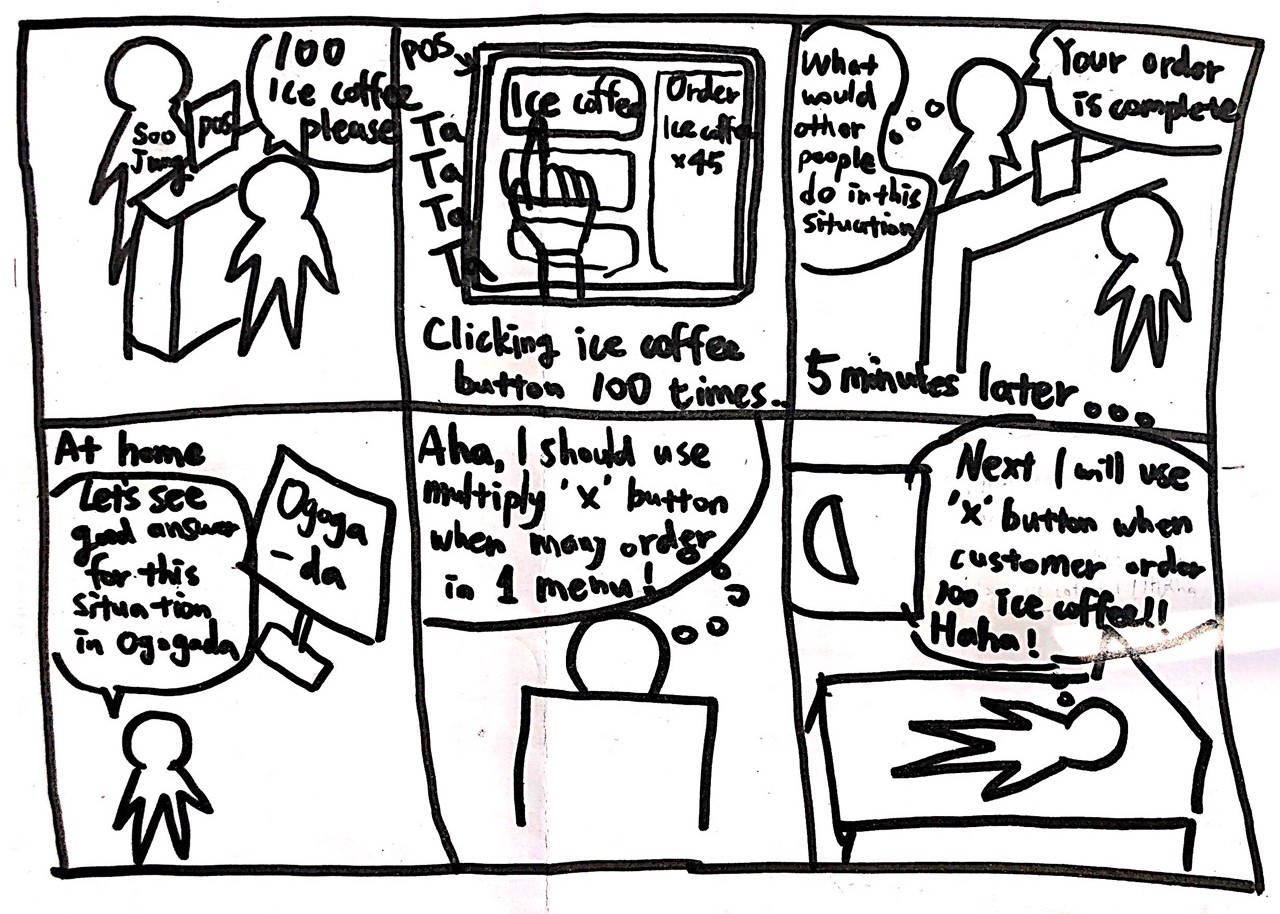 100
Ice coffee
please
Soo
Jung
pos
pos
Ice coffee
Order
Ice coffee
x45
Ta
Ta
Ta
Ta
Clicking ice coffee
button 100 times..
What
would
other
people
do in this
situation
Your order
is complete
5 minutes later...
At home
Let's see
good answer
for this
situation
in Ogogada
Ogoga
-da
Aha, I should use
multiply 'x' button
when many order
in 1 menu!
Next I will use
'x' button when
customer order
100 ice coffee!!
Haha!